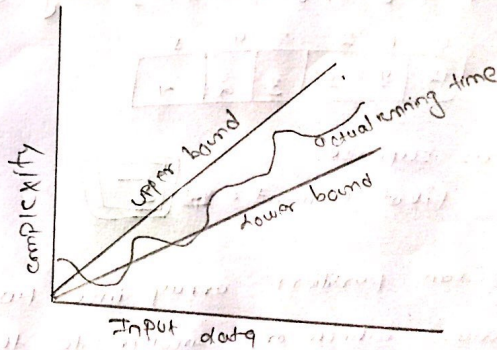 complexity
upper bound
actual running time
Lower bound
Input data